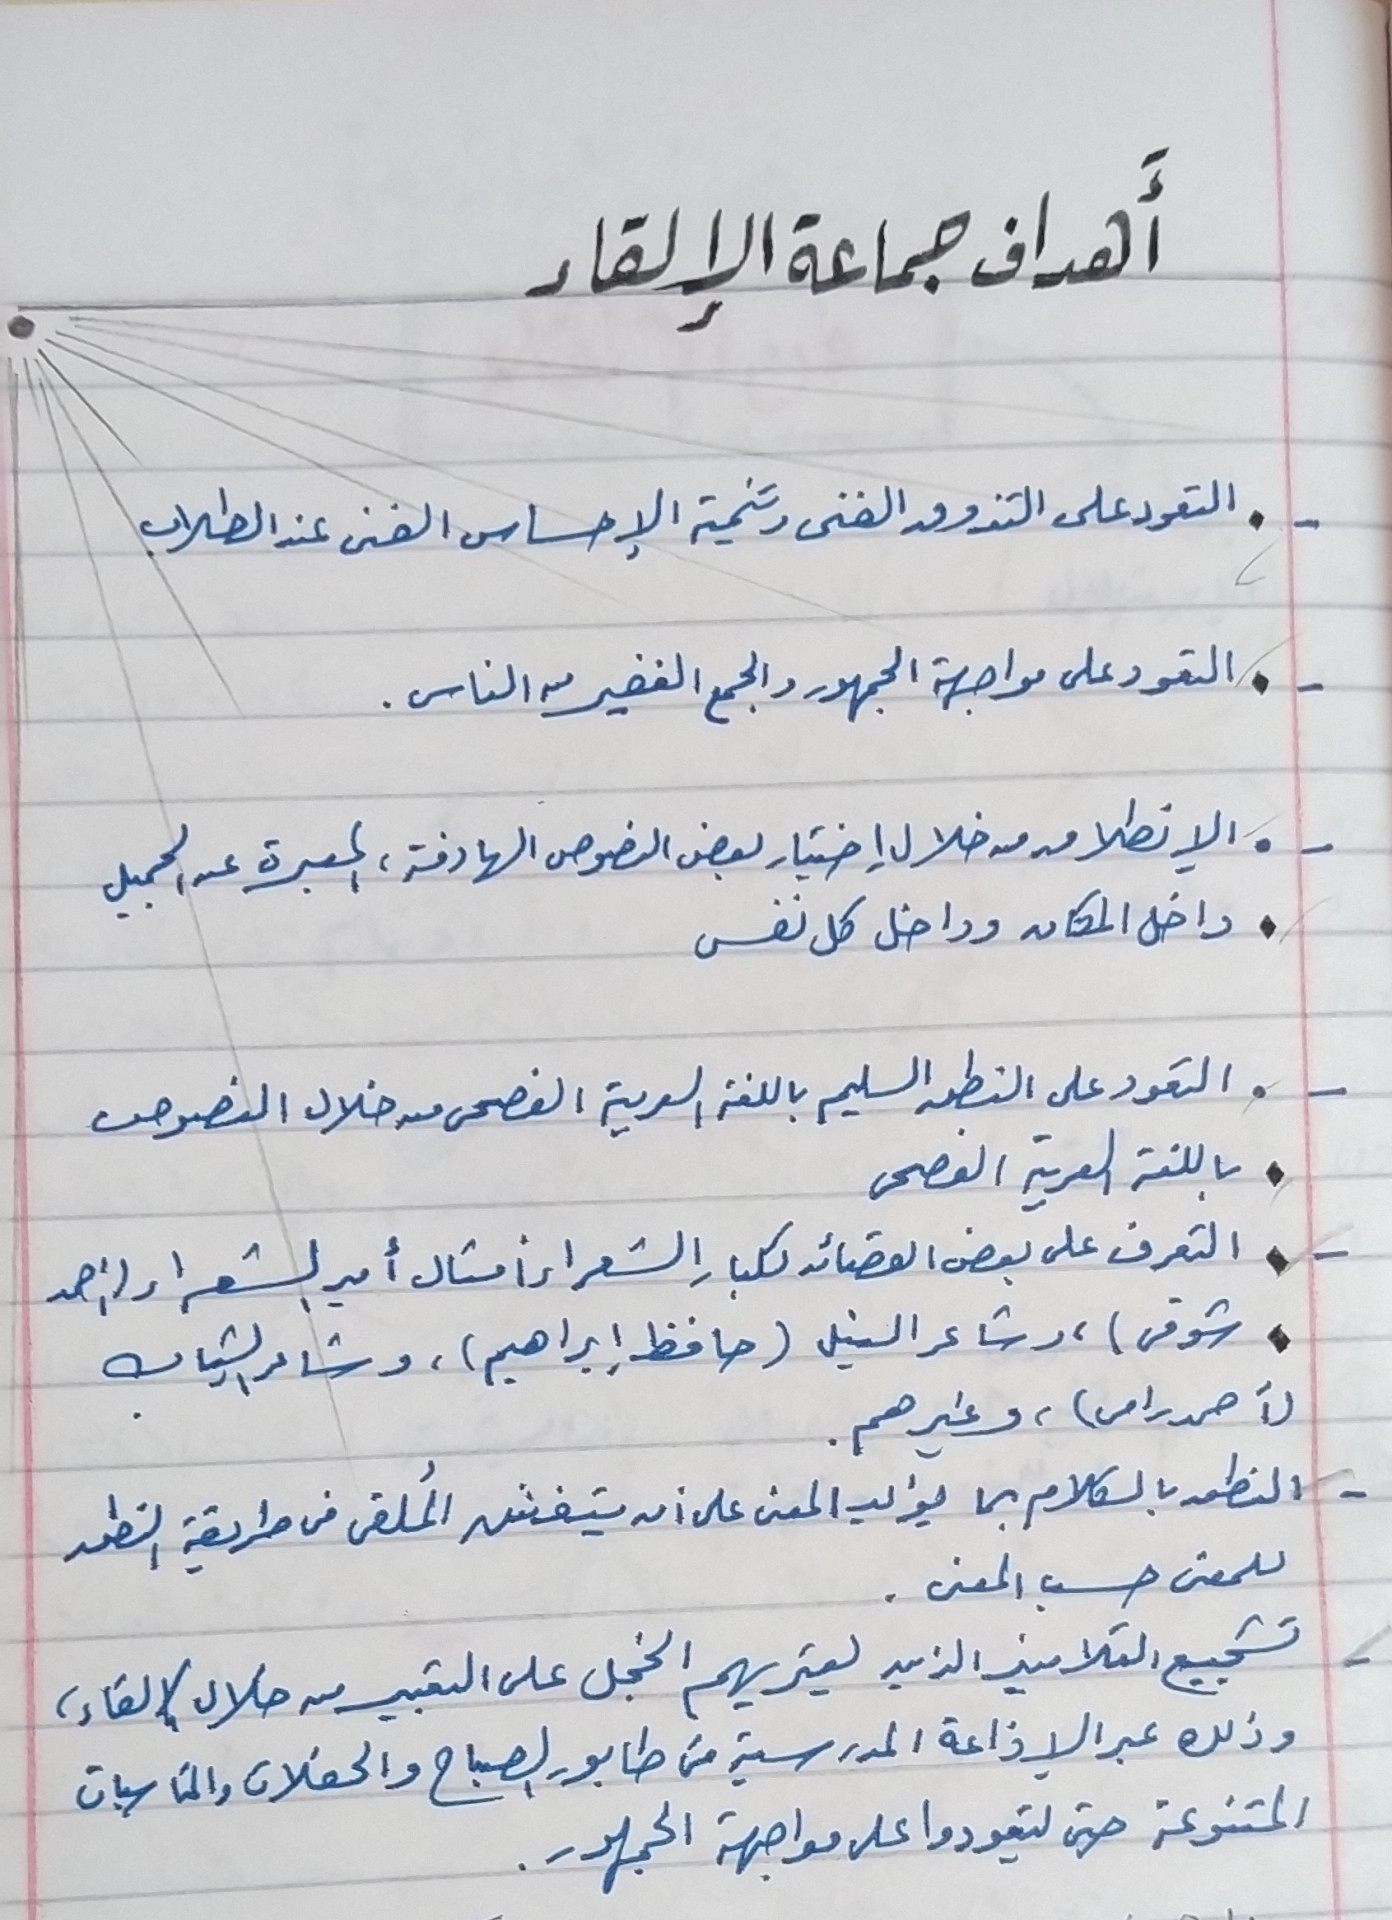 أهداف جماعة الإلقاء
- التعود على التذوق الفنى وتنمية الإحساس الفنى عند الطلاب
- التعود على مواجهة الجمهور والجمع الغفير من الناس .
- الإنطلاق من خلال إختيار بعض النصوص الهادفة ، المعبرة عن الجميل
داخل المكان وداخل كل نفس
- التعود على النطق السليم باللغة العربية الفصحى من خلال النصوص
باللغة العربية الفصحى
- التعرف على بعض القصائد لكبار الشعراء أمثال أمير الشعراء (أحمد
شوقى) ، وشاعر النيل (حافظ إبراهيم) ، وشاعر الشباب
(أحمد رامى) ، وغيرهم .
- النطق بالكلام بما يؤكد المعنى على أن يتفنن المُلقى فى طريقة النطق
للمعنى حسب المعنى .
- تشجيع التلاميذ الذين يعتريهم الخجل على التعبير من خلال الإلقاء ،
وذلك عبر الإذاعة المدرسية فى طابور الصباح والحفلات والمناسبات
المتنوعة حتى يتعودوا على مواجهة الجمهور .